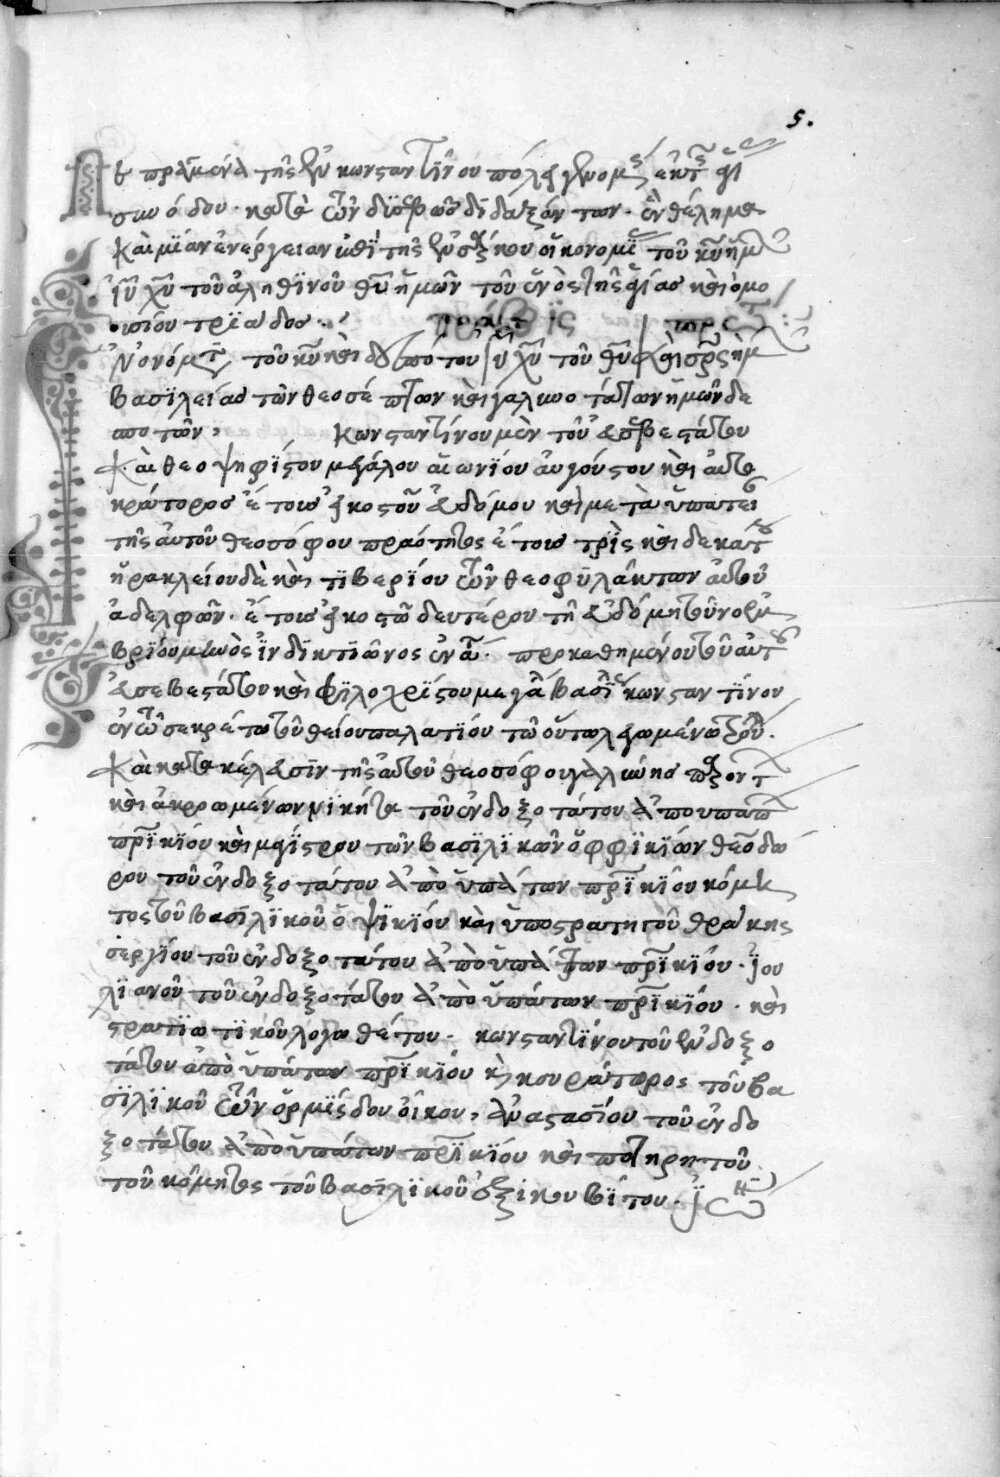 5.
Τὰ πεπραγμένα τῆς ἐν κωνσταντίνου πόλει γενομένης ἕκτης ἁγί
συνόδου· κατὰ τῶν δϊσεβῶς δϊδαξάντων· ἓν θέλημα
Καὶ μϊὰν ἐνέργειαν ἐπὶ τῆς ἐνσάρκου οἰκονομΐ τοῦ κυ ἡμ
ἰυ χυ τοῦ ἀληθϊνοῦ θυ ἡμῶν τοῦ ἑνὸς τῆς ἁγίας καὶ ὁμο
ουσίου τρϊάδος·
πρᾶξϊς πρώτ:
Ἐν ὀνόματι τοῦ κυ καὶ δεσπότου ἰυ χυ τοῦ θυ καὶ σρς ἡμ
βασϊλείας τῶν θεοσέπτων καὶ γαληνοτάτων ἡμῶν δε
σποτῶν, Κωνσταντίνου μὲν τοῦ εὐσεβεστάτου
Καὶ θεοψηφίστου μεγάλου αἰωνϊου αὐγούστου καὶ αὐτο
κράτορος ἔτους εἰκοστοῦ ἑβδόμου καὶ μετὰ ὑπατεί
τῆς αὐτοῦ θεοσόφου πραότητος ἔτους τρὶς καὶ δεκάτου
ἡρακλείου δὲ καὶ τϊβερϊου τῶν θεοφϋλάκτων αὐτοῦ
ἀδελφῶν· ἔτους εἰκοστῶ δευτέρου τῆ ἑβδόμη τοῦ νοεμ
βρϊου μηνὸς ἰνδϊκτϊῶνος ἐνάτ· προκαθημένου τοῦ αὐτοῦ
εὐσεβεστάτου καὶ φϊλοχρϊστου μεγάλ βασϊ κωνσταντϊνου
ἐν τῶ σεκρέτω τοῦ θείου παλατϊου τῶ οὕτω λεγομένω τρούλ.
Καὶ κατὰ κέλευσϊν τῆς αὐτοῦ θεοσόφου γαλήνης παρόντ
καὶ ἀκροωμένων νϊκήτα τοῦ ἐνδοξοτάτου ἀπὸ ὑπάτ
πρϊκϊου καὶ μαγίστρου τῶν βασϊλϊκῶν ὀφφϊκϊων θεοδώ
ρου τοῦ ἐνδοξοτάτου ἀπὸ ὑπάτων πρϊκϊου κόμη
τος τοῦ βασϊλϊκοῦ ὀψϊκϊου καὶ ὑποστρατήγου θράκης
σεργϊου τοῦ ἐνδοξοτάτου ἀπὸ ὑπάτων πρϊκϊου· ἰου
λϊανοῦ τοῦ ἐνδοξοτάτου ἀπὸ ὑπάτων πρϊκϊου· καὶ
στρατϊωτϊκοῦ λογοθέτου· κωνσταντϊνου τοῦ ἐνδοξο
τάτου ἀπὸ ὑπάτων πρϊκϊου καὶ κουράτορος τοῦ βα
σϊλϊκοῦ τῶν ὁρμϊσδου οἴκου, ἀναστασϊου τοῦ ἐνδο
ξοτάτου ἀπὸ ὑπάτων πρϊκϊου καὶ τοποτηρητοῦ
τοῦ κόμητος τοῦ βασϊλϊκοῦ ἐξκουβϊτου· ἰω